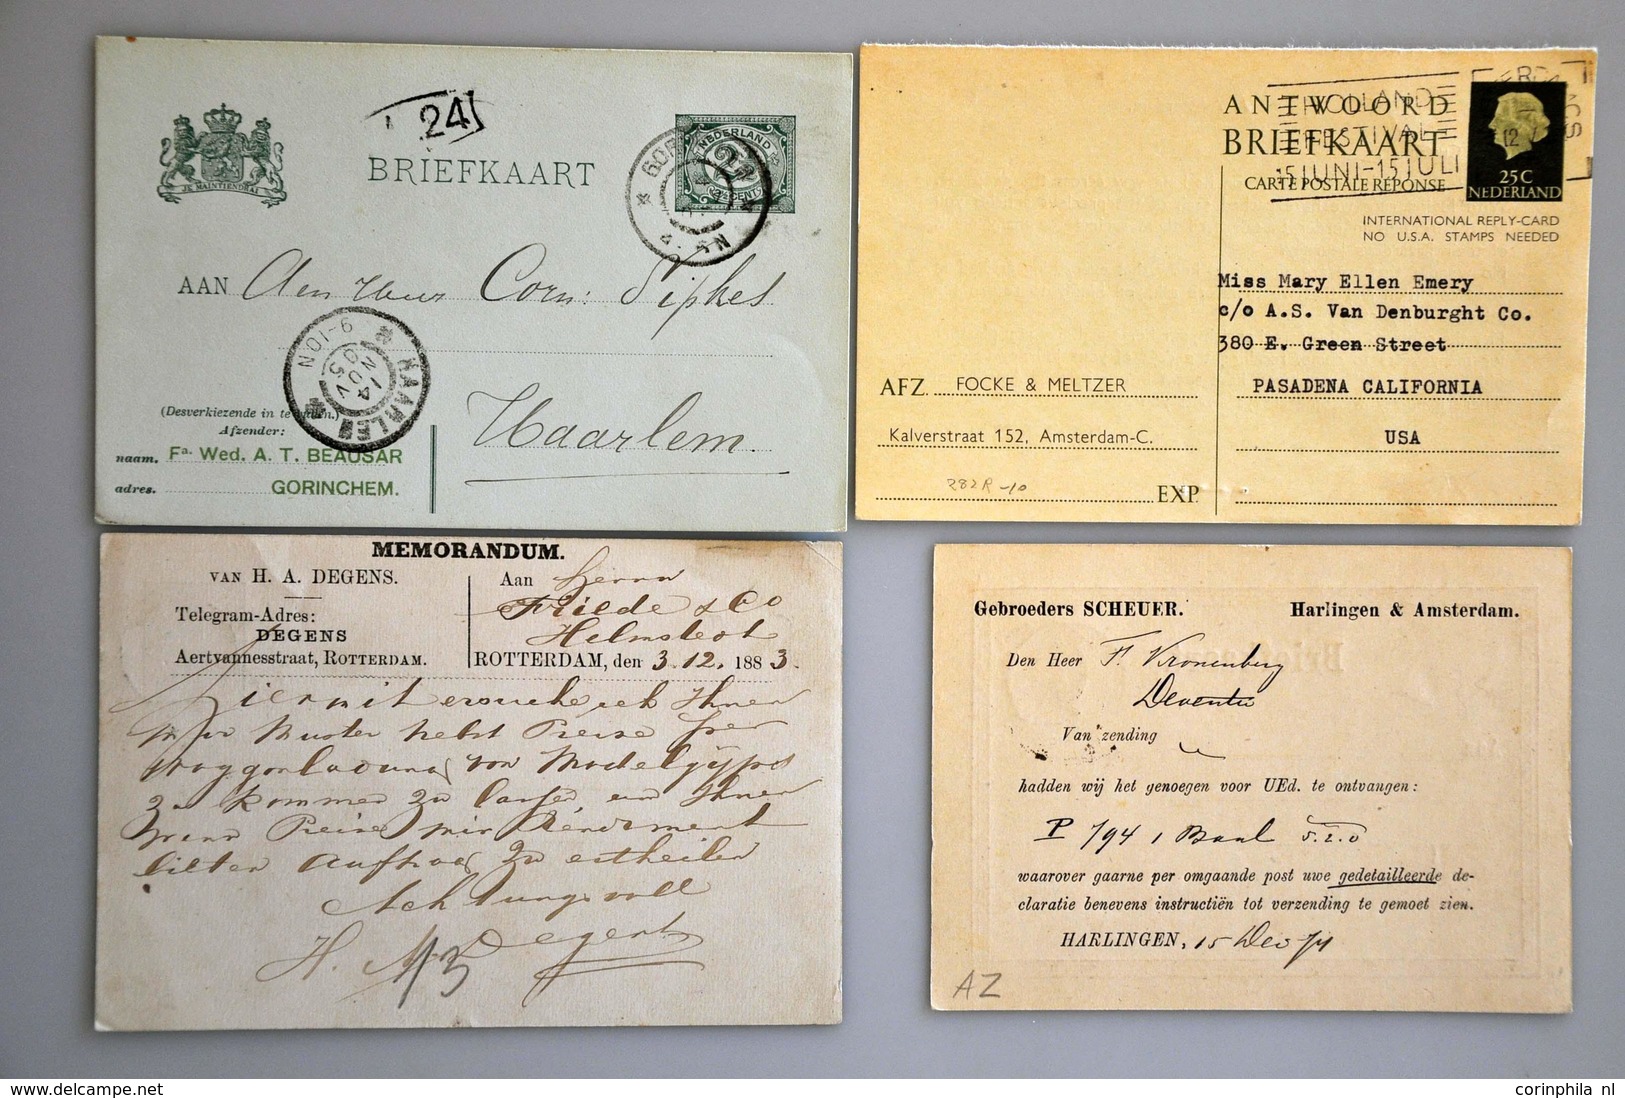 24
BRIEFKAART
JE MAINTIENDRAI
NEDERLAND
2½
CENT
AAN Den Heer Corn: Sipkes
HAARLEM
14 NOV 05
9-10N
Haarlem.
Afzender:
naam. Fa. Wed. A. T. BEAUSAR
adres. GORINCHEM.
ANTWOORD
BRIEFKAART
CARTE POSTALE RÉPONSE
HOLLAND
FESTIVAL
15 JUNI-15 JULI
12
25C
NEDERLAND
INTERNATIONAL REPLY-CARD
NO U.S.A. STAMPS NEEDED
Miss Mary Ellen Emery
c/o A.S. Van Denburght Co.
380 E. Green Street
PASADENA CALIFORNIA
USA
AFZ. FOCKE & MELTZER
Kalverstraat 152, Amsterdam-C.
282R-10
EXP.
MEMORANDUM.
VAN H. A. DEGENS.
Telegram-Adres:
DEGENS
Aertvannesstraat, ROTTERDAM.
Aan Herrn
Friede & Co
Helmstedt
ROTTERDAM, den 3.12. 1883.
Hiermit ersuche ich Ihnen
mir Muster nebst Preise per
Waggonladung von Modelgyps
zu kommen zu lassen, und Ihnen
bitten Auftrag zu ertheilen
Achtungsvoll
H. A. Degens
Gebroeders SCHEUER. Harlingen & Amsterdam.
Den Heer F. Kronenberg
Deventer
Van zending
hadden wij het genoegen voor UEd. te ontvangen:
P 794 1 Baal
waarover gaarne per omgaande post uwe gedetailleerde de-
claratie benevens instructiën tot verzending te gemoet zien.
HARLINGEN, 15 Dec 71
AZ
corinphila nl